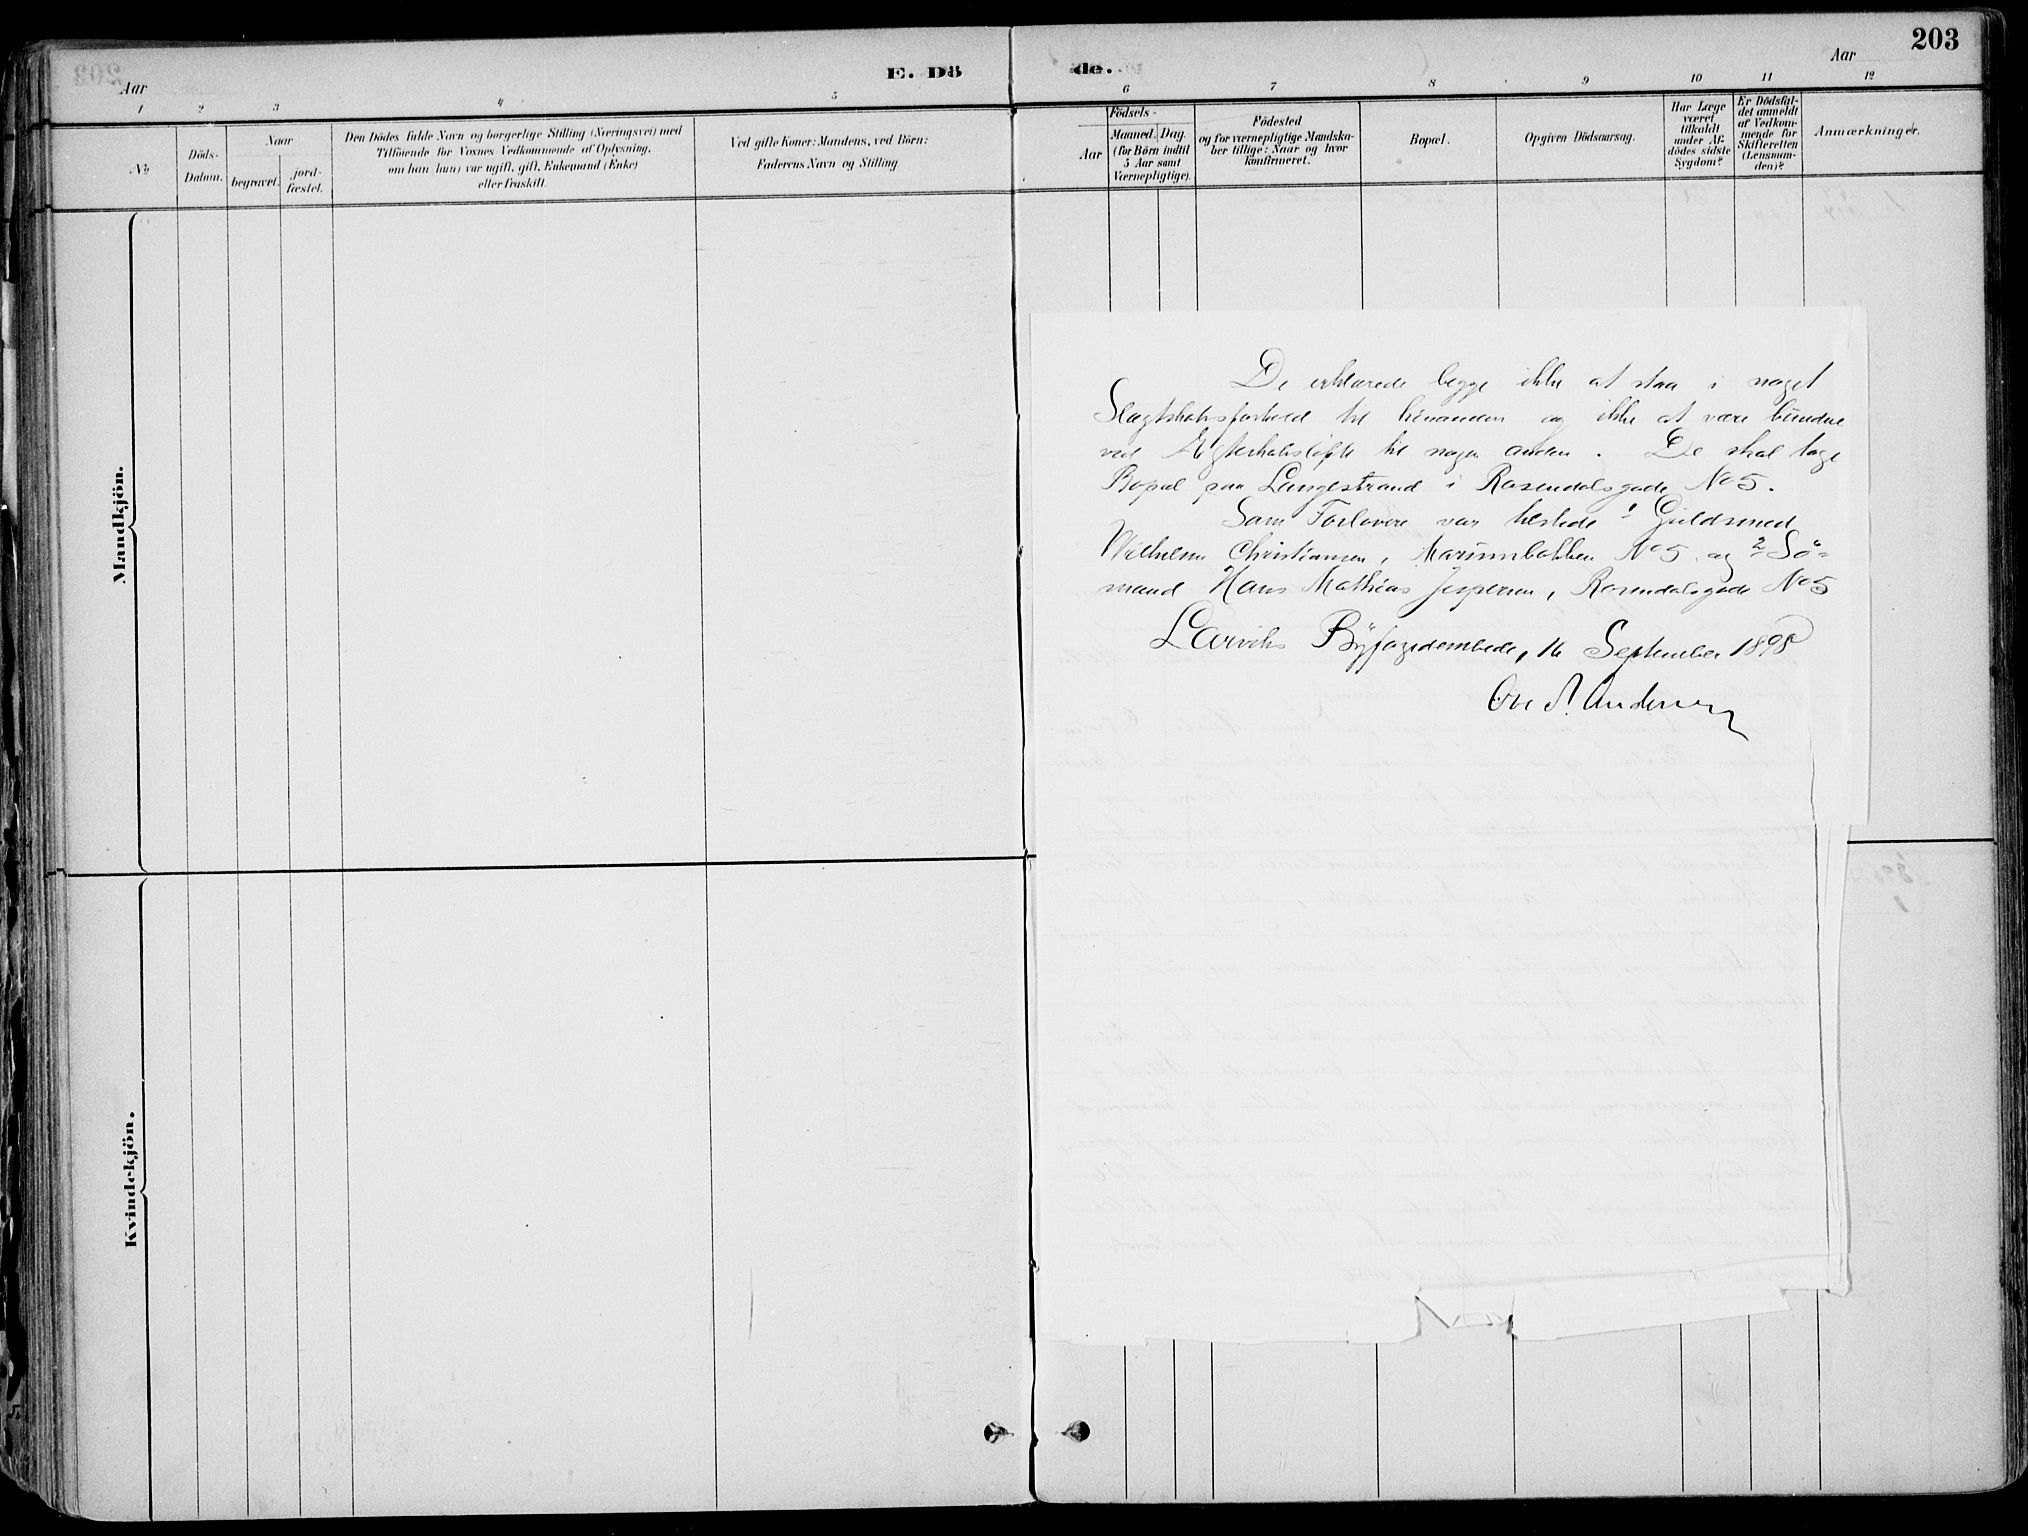 203
Aar
E. Dö
de.
Aar
1
2
3
4
5
6
7
8
9
10
11
12
No
Döds-
Datum.
Naar
begravet.
jord-
fæstet.
Den Dödes fulde Navn og borgerlige Stilling (Næringsvei) med
Tilföiende for Voxnes Vedkommende af Oplysning,
om han (hun) var ugift, gift, Enkemand (Enke)
eller fraskilt.
Ved gifte Koner: Mandens, ved Börn:
Faderens Navn og Stilling.
Födsels-
Aar
Maaned. Dag.
(for Börn indtil
5 Aar samt
Værnepligtige).
Födested
og for værnepligtige Mandska-
ber tillige: Naar og hvor
konfirmeret.
Bopæl.
Opgiven Dödsaarsag.
Har Læge
været
tilkaldt
under Af-
dödes sidste
Sygdom?
Er Dödsfal-
det anmeldt
af Vedkom-
mende for
Skifteretten
(Lensman-
den)?
Anmærkninger.
Mandkjön.
Kvindekjön.
De erklærede begge ikke at staa i noget
Slægtskabsforhold til hinanden og ikke at være bundne
ved Ægteskabsløfte til nogen anden. De skal tage
Bopæl paa Langestrand i Rosendalsgade No 5.
Som Forlovere var tilstede 1 Guldsmed
Wilhelm Christiansen, Marumbakken No 5 og 2 Sö-
mand Hans Mathias Jespersen, Rosendalsgade No 5
Larviks Byfogedembede, 16 September 1898
Ove A. Andersen